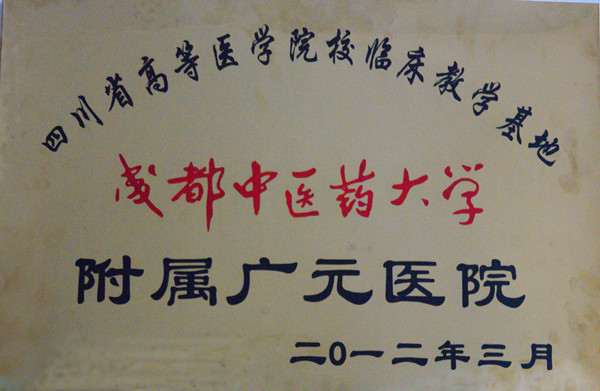 四川省高等医学院校临床教学基地
成都中医药大学
附属广元医院
二0一二年三月